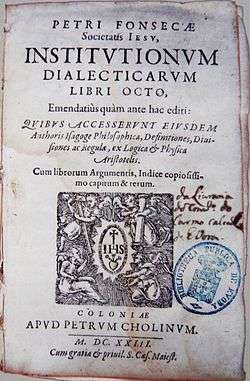 PETRI FONSECÆ
Societatis IESV,
INSTITVTIONVM
DIALECTICARVM
LIBRI OCTO,
Emendatiùs quàm ante hac editi:
QVIBVS ACCESSERVNT EIVSDEM
Authoris Isagoge Philosophica, Definitiones, Diui-
siones ac Regulæ, ex Logica & Physica
Aristotelis.
Cum librorum Argumentis, Indice copiosissi-
mo capitum & rerum.
IHS
COLONIÆ
APVD PETRVM CHOLINVM.
M. DC. XXIII.
Cum gratia & priuil. S. Cæs. Maiest.